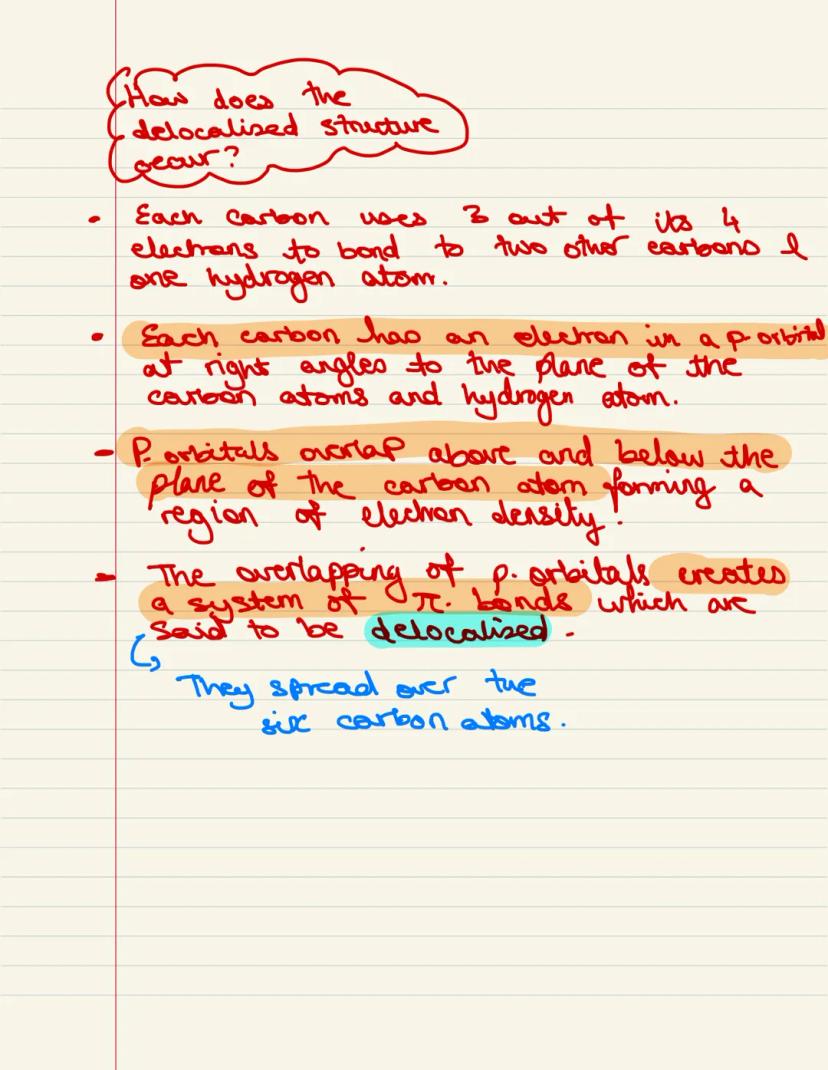 How does the
delocalised structure
occur?
• Each carbon uses 3 out of its 4
electrons to bond to two other carbons &
one hydrogen atom.
• Each carbon has an electron in a p-orbital
at right angles to the plane of the
carbon atoms and hydrogen atom.
- P-orbitals overlap above and below the
plane of the carbon atom forming a
region of electron density.
- The overlapping of p-orbitals creates
a system of π-bonds which are
said to be delocalized.
They spread over the
six carbon atoms.